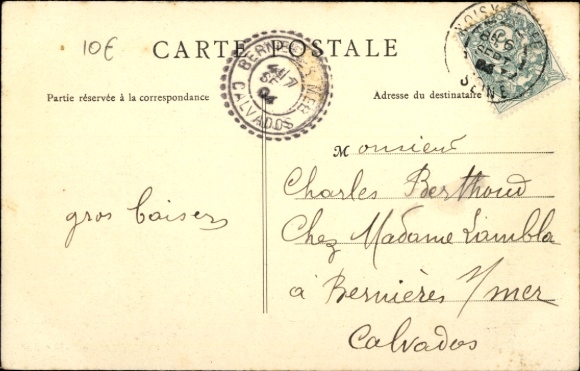 10€
CARTE POSTALE
BERNIERES S MER
CALVADOS
04
SEINE
Partie réservée à la correspondance
Adresse du destinataire
Monsieur
gros baisers
Charles Berthoud
Chez Madame Lambla
à Bernières s/mer
Calvados